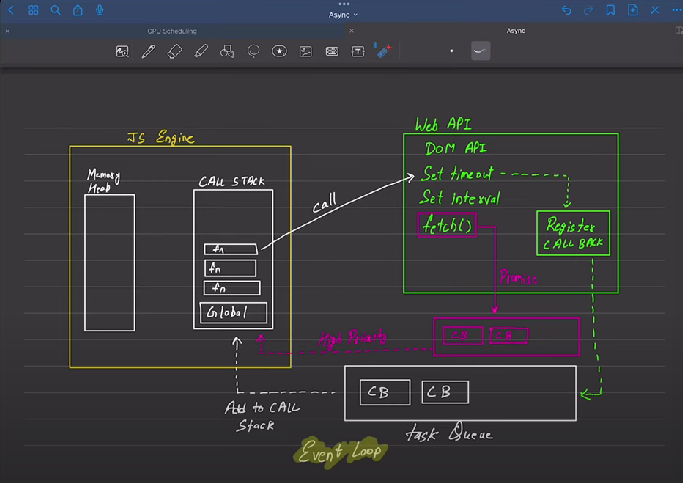 Async
CPU Scheduling
Async
JS Engine
Memory
Heap
CALL STACK
fn
fn
fn
Global
call
Web API
DOM API
Set timeout
Set Interval
fetch()
Register
CALL BACK
Promise
High Priority
CB
CB
CB
CB
Add to CALL
Stack
task Queue
Event Loop